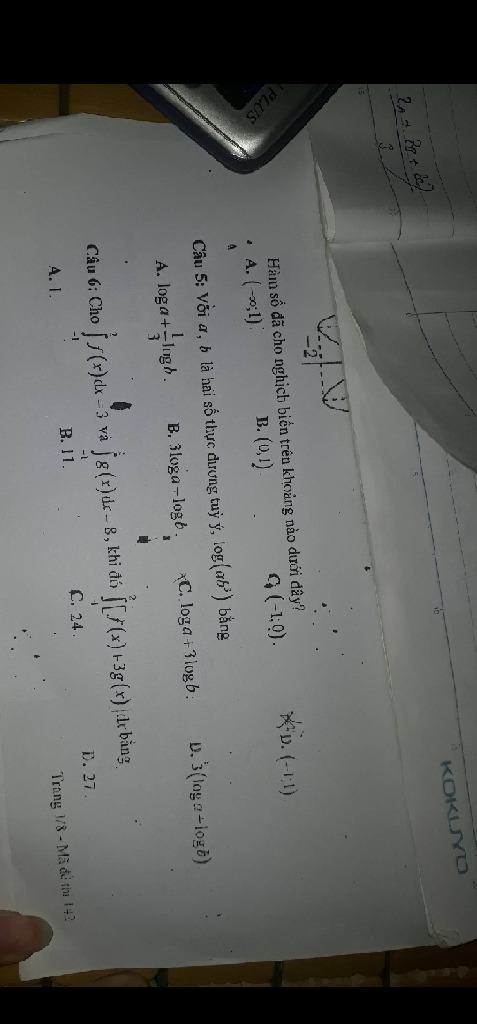 -2
Hàm số đã cho nghịch biến trên khoảng nào dưới đây?
A. (-∞;1) B. (0;1) C. (-1;0). D. (-1;1)
Câu 5: Với a, b là hai số thực dương tuỳ ý, log(ab³) bằng
A. log a + 1/3 log b. B. 3 log a + log b. C. log a + 3 log b. D. 3(log a + log b)
Câu 6: Cho ∫₋₁² f(x)dx = 3 và ∫₋₁² g(x)dx = 8, khi đó ∫₋₁² [f(x)+3g(x)]dx bằng
A. 1. B. 11. C. 24. D. 27.
Trang 1/8 - Mã đề thi 142
KOKUYO
PLUS